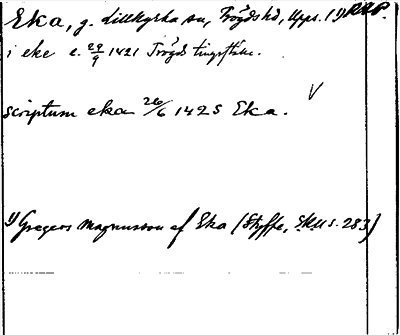 Eka, g. Lillkyrka sn, Trögds hd, Upps. l. 1) RAP.
i eke c. 29/9 1421 Trögds tingställe.
scriptum eka 26/6 1425 Eka. V
1) Gregers Magnusson af Eka (Styffe, SkU s. 283)